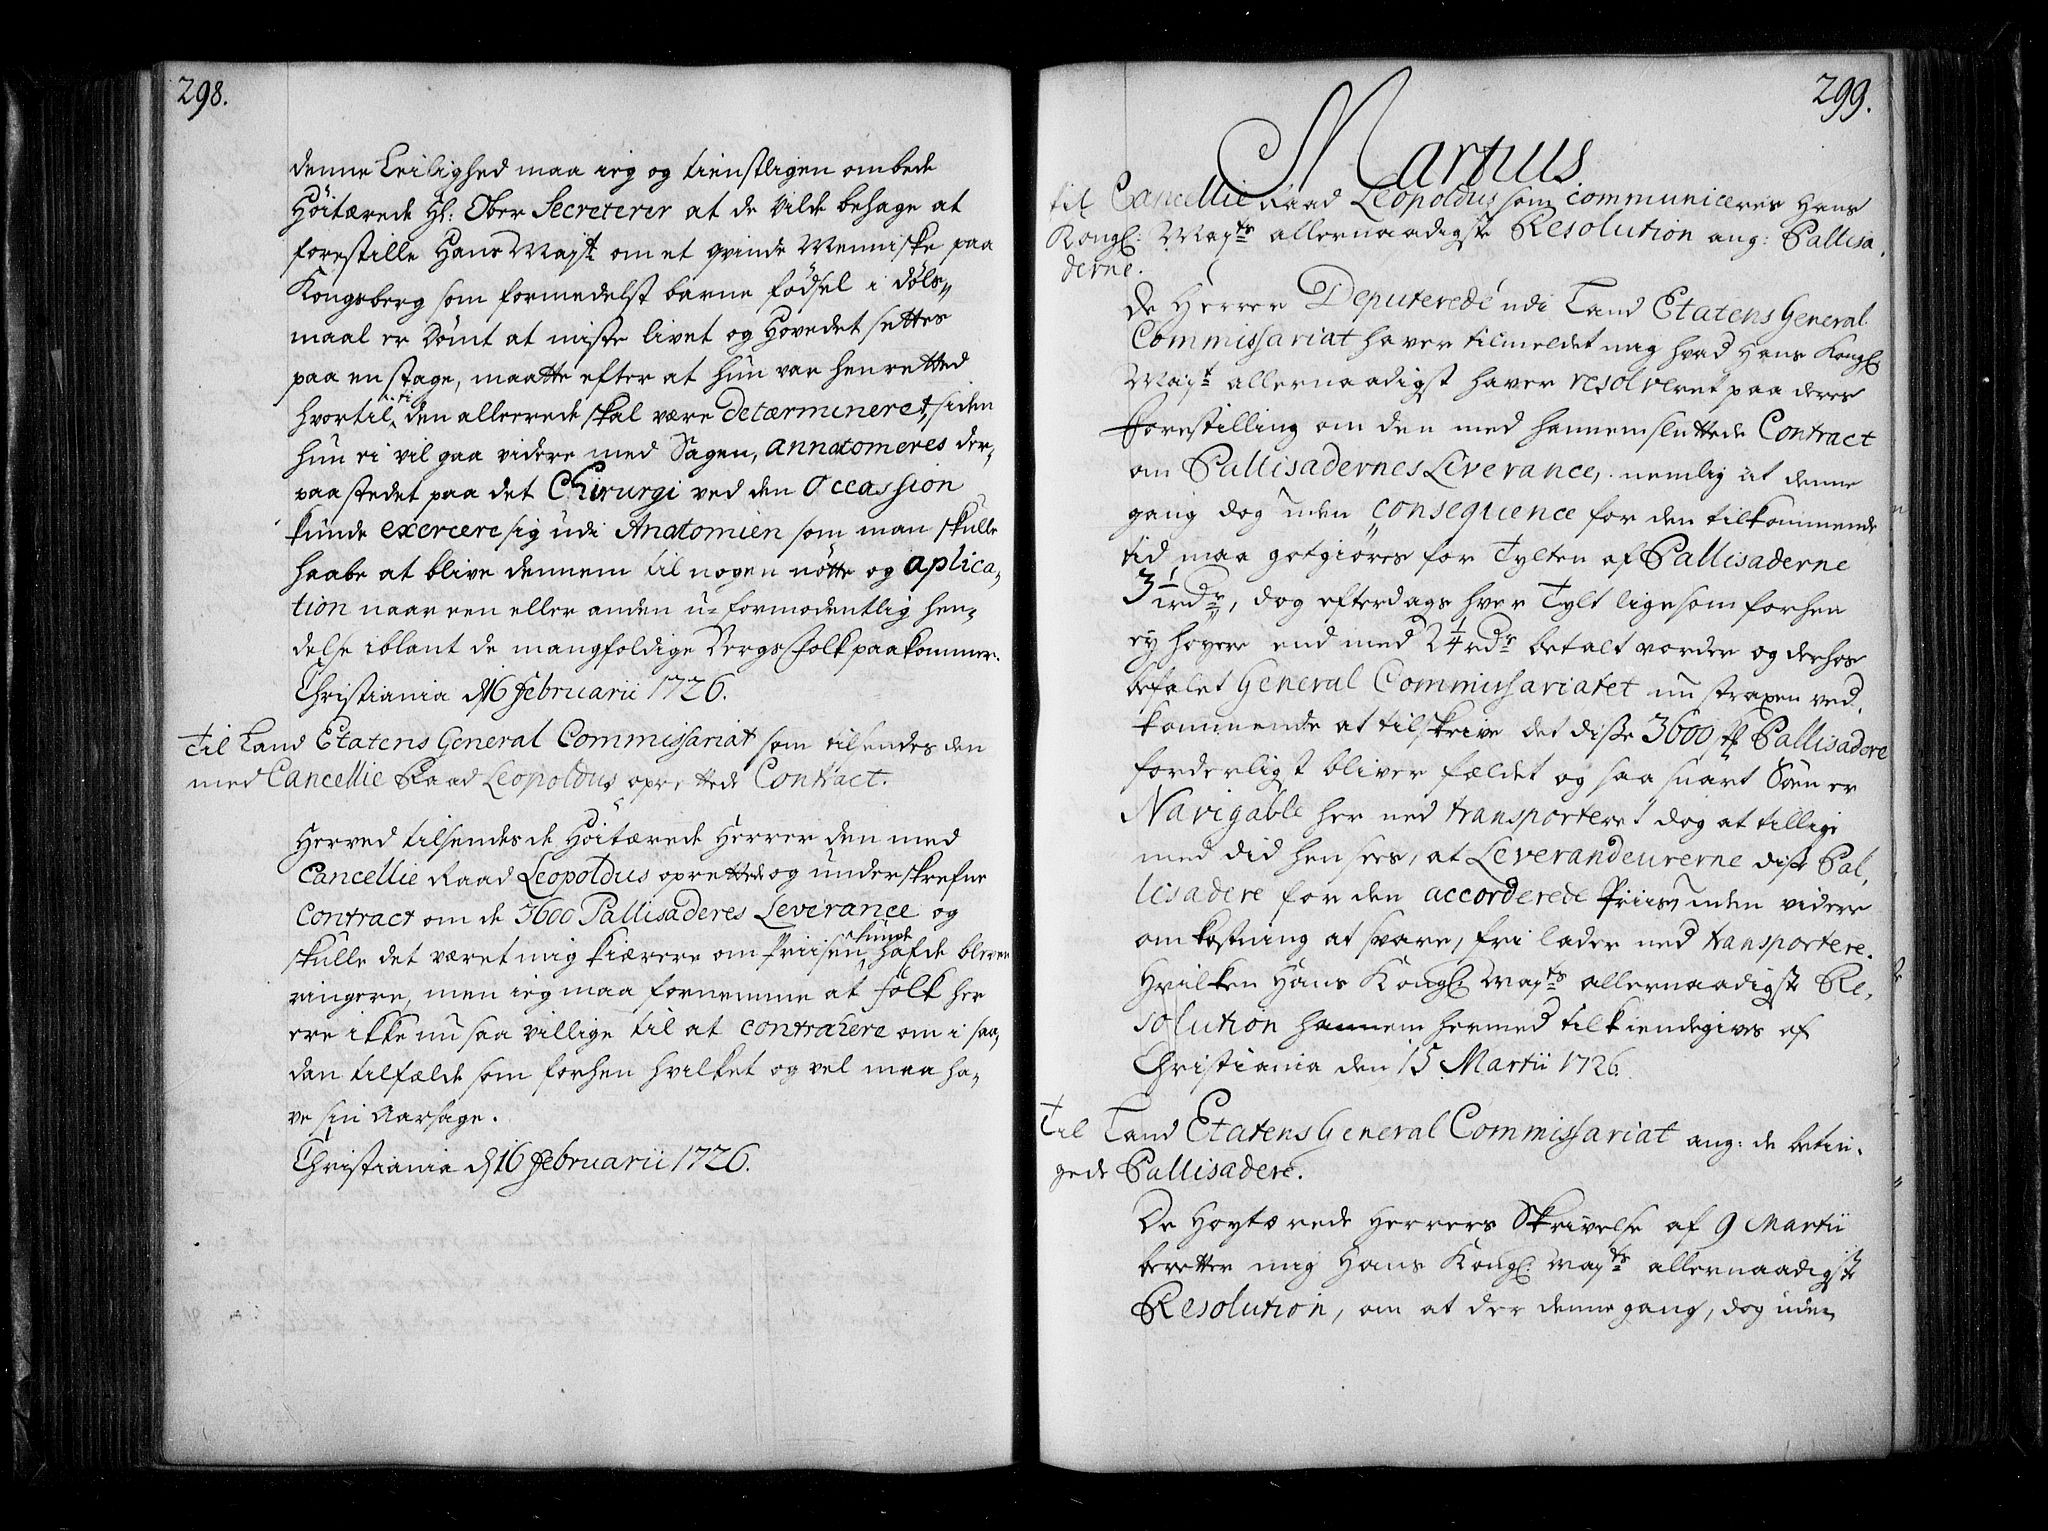 298.
denne Leilighed maa ieg og tienstligen ombede
Höitærede Hl: Ober Secreterer at de vilde behage at
forestille Hans Mayt om et qvinde Menniske paa
Kongsberg som formedelst barne fødsel i døls„
maal er Dömt at miste livet og Hovedet settes
paa en stage, maatte efter at hun var henretted
hvortil tiden allerrede skal være determineret, siden
hun ei vil gaa videre med Sagen, annatomeres der„
paa stedet paa det Chirurgi ved den Occassion
kunde exercere sig udi Anatomien som man skulle
haabe at blive dennem til nogen nötte og aplica„
tion naar een eller anden u-formodentlig hen„
delse iblant de mangfoldige Bergs Folk paakommer.
Christiania d 16 Februarii 1726.
Til Land Etatens General Commissariat som tilsendes den
med Cancellie Raad Leopoldus oprettede Contract.
Herved tilsendes de Höitærede Herrer den med
Cancellie Raad Leopoldus oprettede og underskrefne
Contract om de 3600 Pallisaderes Leverance og
skulle det været mig kiærere om Priisen kunde hafde bleven
ringere, men ieg maa fornemme at folk her
ere ikke nu saa villige til at contrahere om i saa„
dan tilfælde som forhen hvilket og vel maa ha„
ve sin Aarsage.
Christiania d 16 Februarii 1726.
299.
Martius
til Cancellie Raad Leopoldus som communiceres Hans
Kongl: Mayts allernaadigste Resolution ang: Pallisa„
derne.
De Herrer Deputerede udi Land Etatens General
Commissariat haver tilmeldet mig hvad Hans Kongl
Mayt allernaadigst haver resolveret paa deres
Forestilling om den med hannem sluttede Contract
om Pallisadernes Leverance, nemlig at denne
gang dog uden consequence for den tilkommende
tid maa gotgiøres for Tylten af Pallisaderne
3½ rdr, dog efterdags hver Tylt ligesom forhen
ey høyere end med 2¼ rdr betalt vorder og derhos
befalet General Commissariatet nu straxen ved„
kommende at tilskrive det disse 3600 st Pallisadere
forderligst bliver fældet og saa snart Söen er
Navigable her ned transporteret dog at tillige
med did hen sees, at Leverandeurerne disse Pal„
lisadere for den accorderede Priis, uden videre
omkostning at svare, fri lader ned transportere.
Hvilken Hans Kongl: Mayts allernaadigste Re„
solution hannem hermed tilkiendegives af
Christiania den 15 Martii 1726.
Til Land Etatens General Commissariat ang: de betin„
gede Pallisadere.
De Høytærede Herrers Skrivelse af 9 Martii
beretter mig Hans Kongl: Mayts allernaadigste
Resolution, om at der denne gang, dog uden